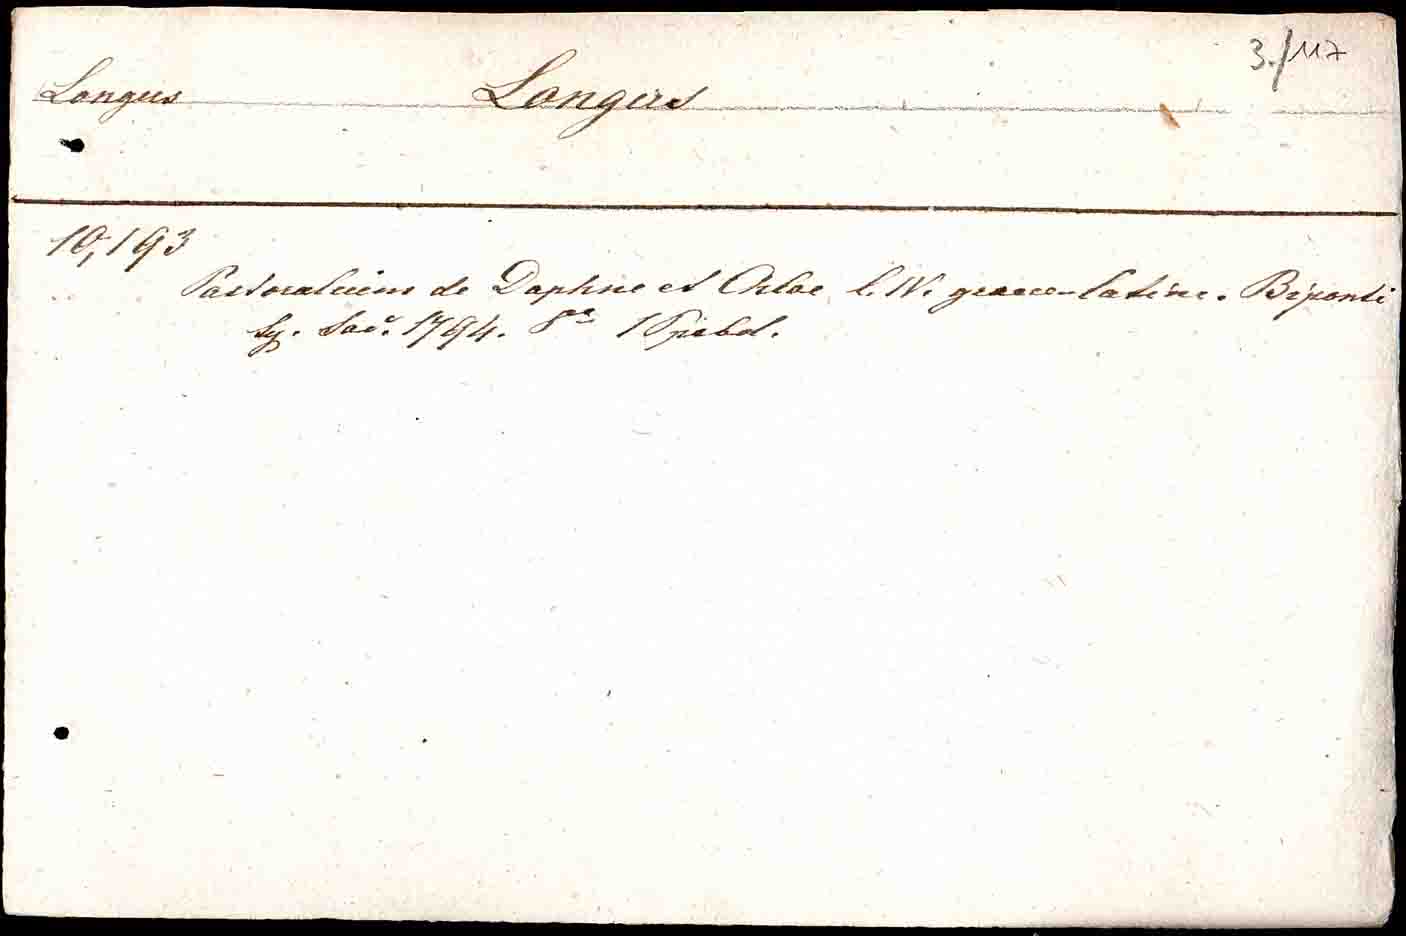 3./117
Longus Longus
10,193
Pastoralium de Daphne et Chloe l. IV. graece-latine. Biponti
Ty. Soc. 1794. 8°